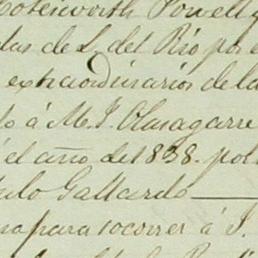 Powell
das de L. del Rio por
extraordinarios de la
á M. J. Olasagarre
el año de 1838. por
Gallardo
para socorrer á J.